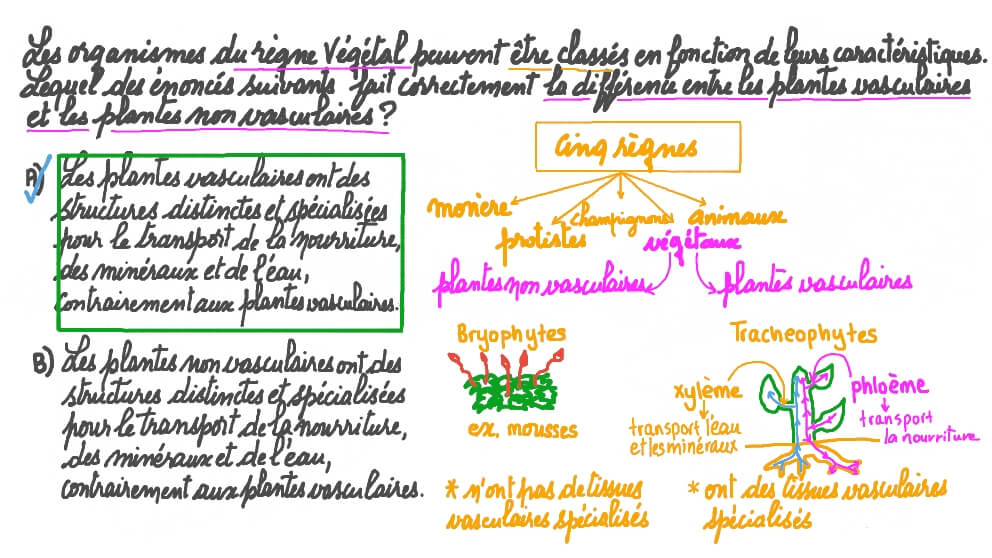 Les organismes du règne Végétal peuvent être classés en fonction de leurs caractéristiques.
Lequel des énoncés suivants fait correctement la différence entre les plantes vasculaires
et les plantes non vasculaires ?
A) Les plantes vasculaires ont des
structures distinctes et spécialisées
pour le transport de la nourriture,
des minéraux et de l'éau,
contrairement aux plantes vasculaires.
B) Les plantes non vasculaires ont des
structures distinctes et spécialisées
pour le transport de la nourriture,
des minéraux et de l'eau,
contrairement aux plantes vasculaires.
Cinq règnes
monère
protistes
champignons
végétaux
animaux
plantes non vasculaires
plantes vasculaires
Bryophytes
ex. mousses
* n'ont pas de tissues
vasculaires spécialisés
Tracheophytes
xylème
transport l'eau
et les minéraux
phloème
transport
la nourriture
* ont des tissues vasculaires
spécialisés